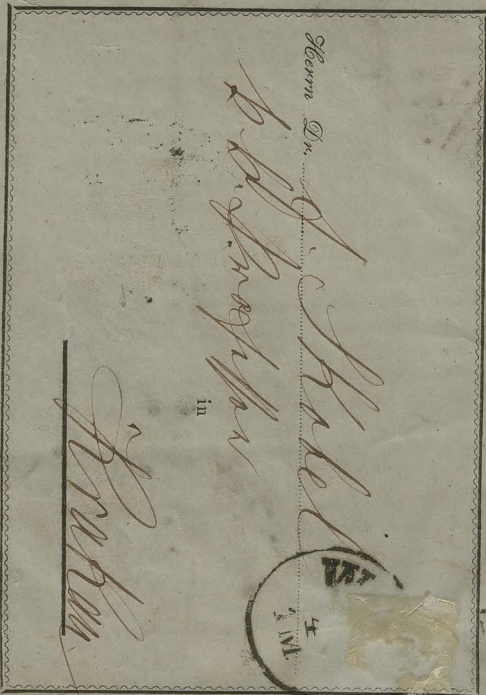 Herrn Dr. F. Skobel
k k Professor
in
Krakau
W
4
M.